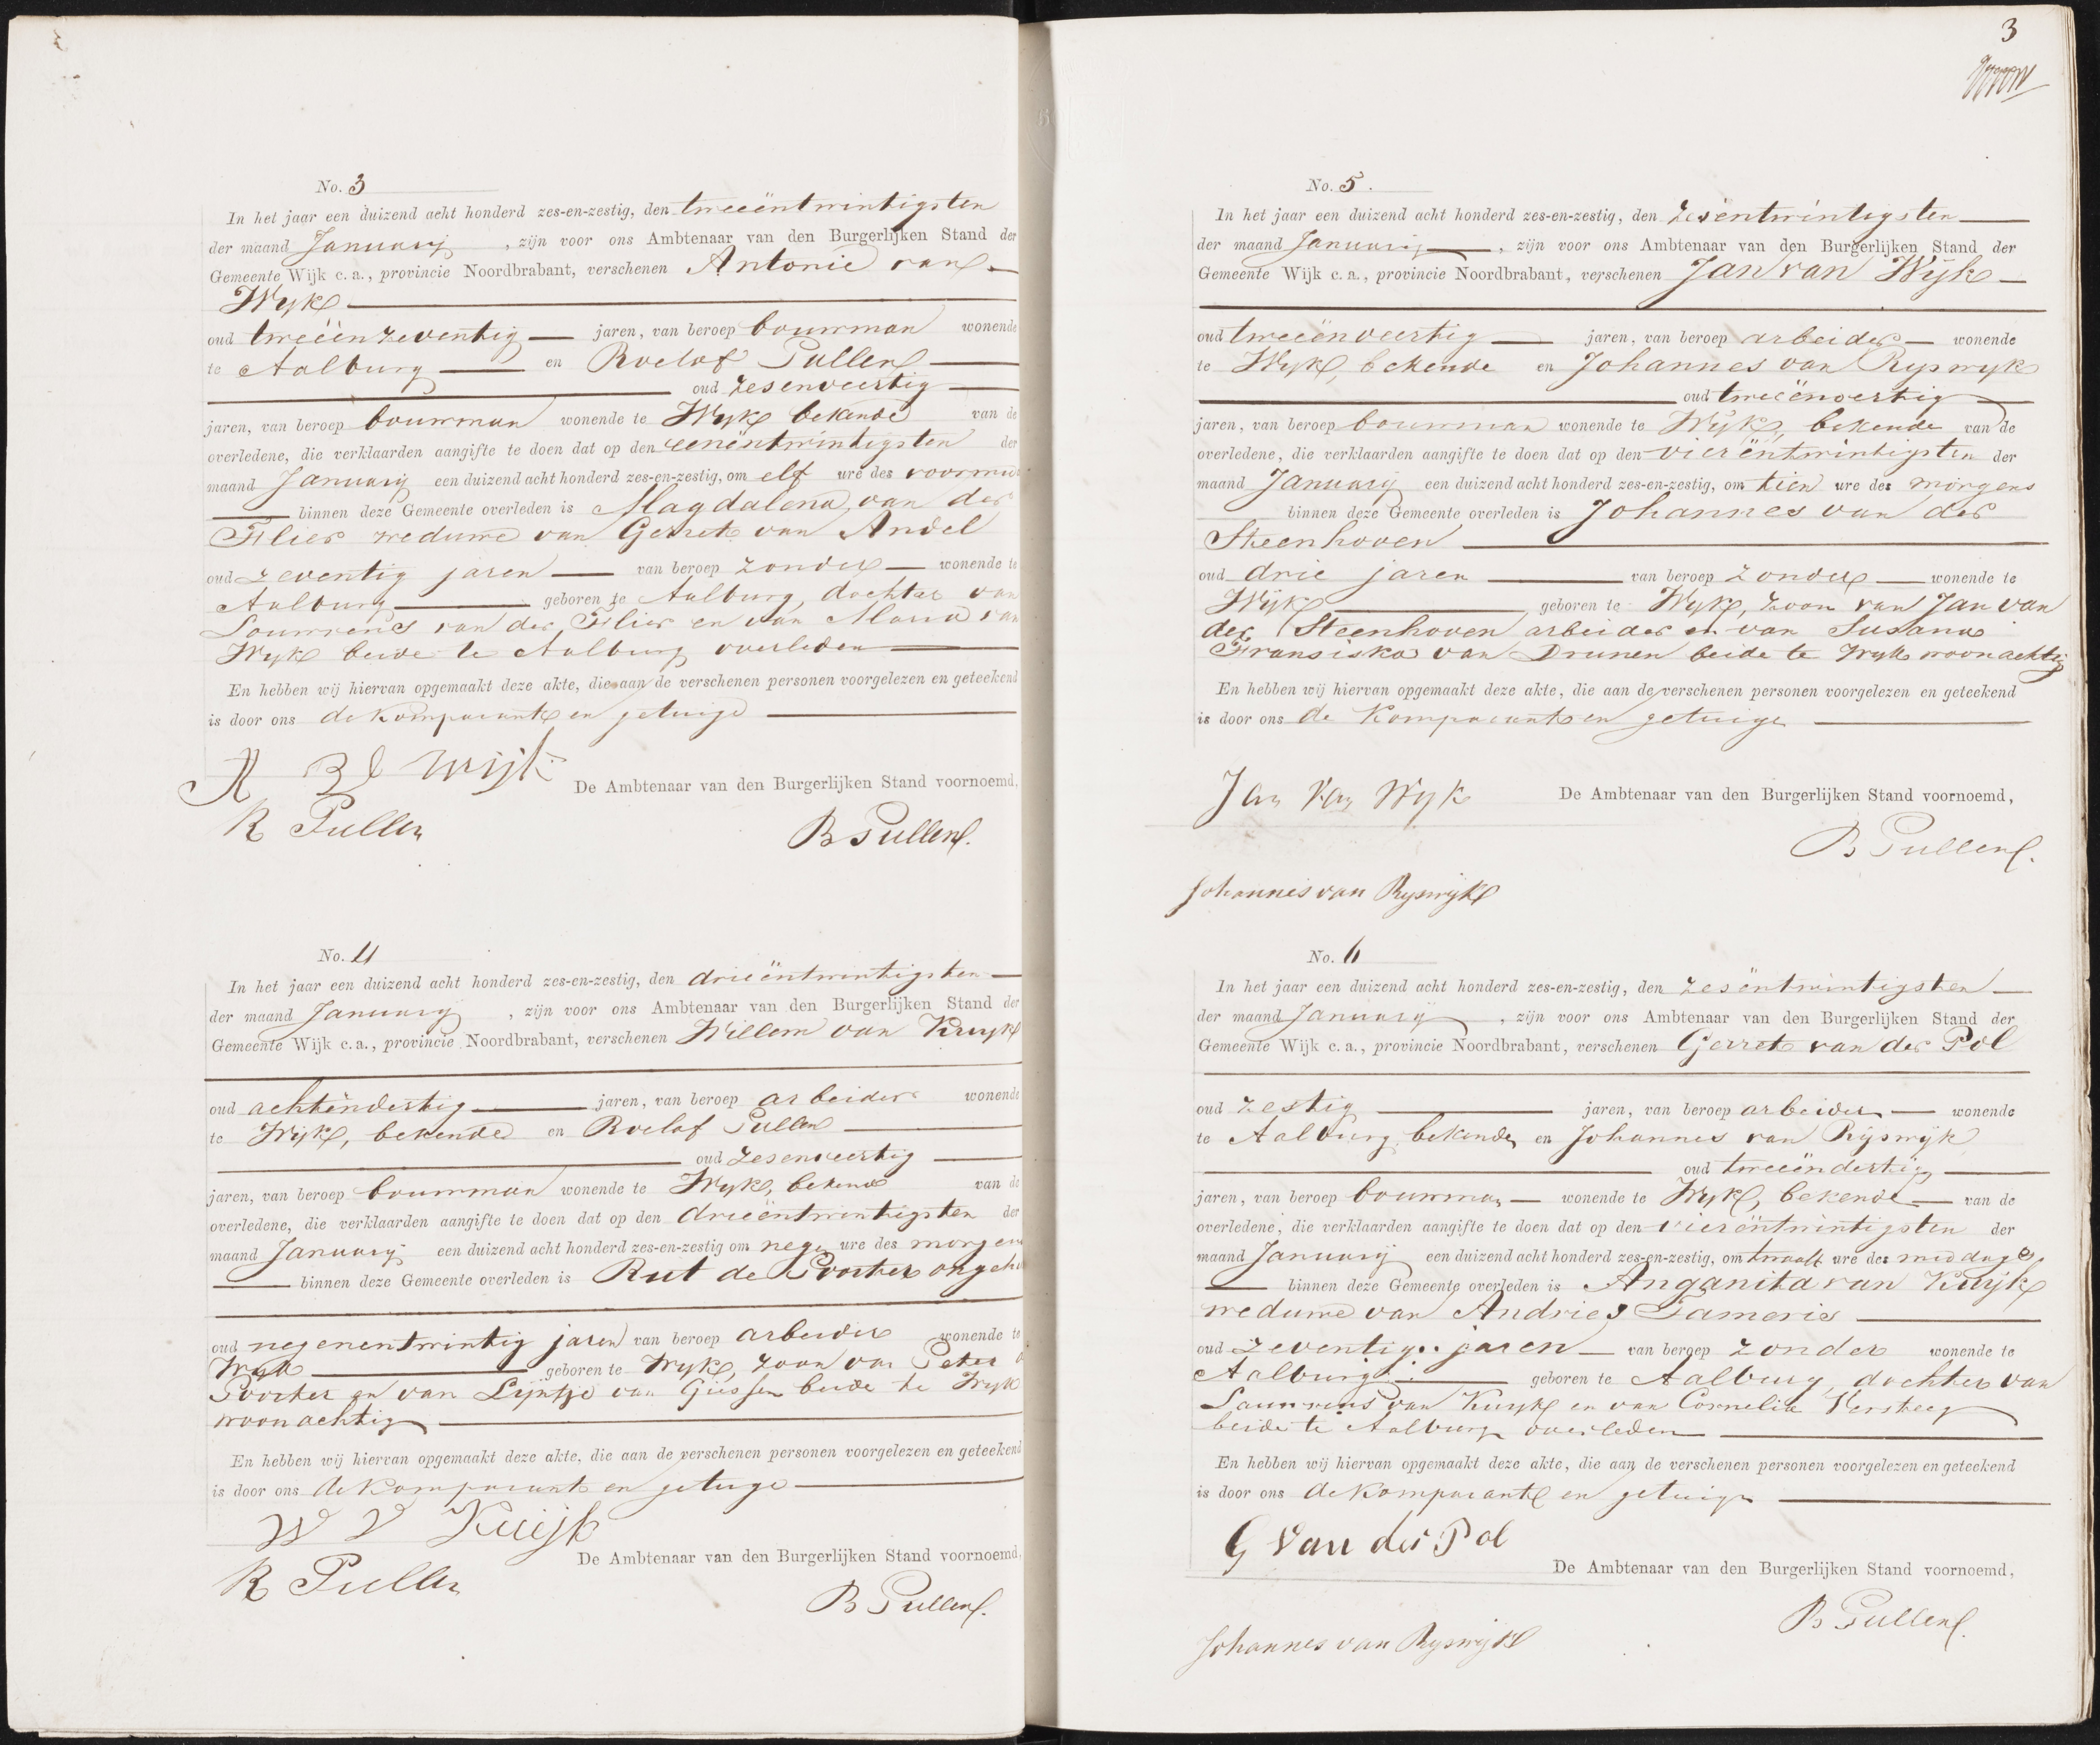 No. 3
In het jaar een duizend acht honderd zes-en-zestig, den tweeëntwintigsten
der maand Januarij , zijn voor ons Ambtenaar van den Burgerlijken Stand der
Gemeente Wijk c. a., provincie Noordbrabant, verschenen Antonie van
Wyk
oud tweeënzeventig jaren, van beroep bouwman wonende
te Aalburg en Roelof Pullen
oud zesenveertig
jaren, van beroep bouwman wonende te Wyk bekende van de
overledene, die verklaarden aangifte te doen dat op den eenëntwintigsten der
maand Januarij een duizend acht honderd zes-en-zestig, om elf ure des voormid
binnen deze Gemeente overleden is Magdalena van der
Flier weduwe van Gerret van Andel
oud zeventig jaren van beroep zonder wonende te
Aalburg geboren te Aalburg, dochter van
Lourrens van der Flier en van Maria van
Wyk beide te Aalburg overleden
En hebben wij hiervan opgemaakt deze akte, die aan de verschenen personen voorgelezen en geteekend
is door ons de komparant en getuige
A wijk
De Ambtenaar van den Burgerlijken Stand voornoemd,
R Pullen
B Pullen.
No. 4
In het jaar een duizend acht honderd zes-en-zestig, den drieëntwintigsten
der maand Januarij , zijn voor ons Ambtenaar van den Burgerlijken Stand der
Gemeente Wijk c. a., provincie Noordbrabant, verschenen Willem van Kuyk
oud achtëndertig jaren, van beroep arbeider wonende
te Wijk, bekende en Roelof Pullen
oud zesenveertig
jaren, van beroep bouwman wonende te Wyk, bekende van de
overledene, die verklaarden aangifte te doen dat op den drieëntwintigsten der
maand Januarij een duizend acht honderd zes-en-zestig om nege ure des morgens
binnen deze Gemeente overleden is Rut de Poorter ongeh
oud negenentwintig jaren van beroep arbeider wonende te
Wyk geboren te Wyk, zoon van Peter d
Poorter en van Lijntje van Giessen beide te Wyk
woonachtig
En hebben wij hiervan opgemaakt deze akte, die aan de verschenen personen voorgelezen en geteekend
is door ons de komparant en getuige
W V Kuijk
De Ambtenaar van den Burgerlijken Stand voornoemd,
R Pullen
B Pullen.
3
No. 5.
In het jaar een duizend acht honderd zes-en-zestig, den zesëntwintigsten
der maand Januarij , zijn voor ons Ambtenaar van den Burgerlijken Stand der
Gemeente Wijk c. a., provincie Noordbrabant, verschenen Jan van Wijk
oud tweeënveertig jaren, van beroep arbeider wonende
te Wyk, bekende en Johannes van Ryswyk
oud tweeënveertig
jaren, van beroep bouwman wonende te Wijk, bekende van de
overledene, die verklaarden aangifte te doen dat op den vierëntwintigsten der
maand Januarij een duizend acht honderd zes-en-zestig, om tien ure des morgens
binnen deze Gemeente overleden is Johannes van der
Steenhoven
oud drie jaren van beroep zonder wonende te
Wijk geboren te Wyk, zoon van Jan van
der Steenhoven arbeider en van Susana
Fransiska van Drunen beide te Wyk woonachtig
En hebben wij hiervan opgemaakt deze akte, die aan de verschenen personen voorgelezen en geteekend
is door ons de komparant en getuige
Jan Van Wyk
De Ambtenaar van den Burgerlijken Stand voornoemd,
B Pullen.
Johannes van Ryswijk
No. 6
In het jaar een duizend acht honderd zes-en-zestig, den zesëntwintigsten
der maand Januarij , zijn voor ons Ambtenaar van den Burgerlijken Stand der
Gemeente Wijk c. a., provincie Noordbrabant, verschenen Gerret van der Pol
oud zestig jaren, van beroep arbeider wonende
te Aalburg bekende en Johannes van Rijswijk
oud tweeëndertig
jaren, van beroep bouwman wonende te Wyk, bekende van de
overledene, die verklaarden aangifte te doen dat op den vierëntwintigsten der
maand Januarij een duizend acht honderd zes-en-zestig, om twaalf ure des middags
binnen deze Gemeente overleden is Anganita van Kuijk
weduwe van Andries Tameris
oud zeventig jaren van beroep zonder wonende te
Aalburg geboren te Aalburg, dochter van
Laurens van Kuyk en van Cornelia Versteeg
beide te Aalburg overleden
En hebben wij hiervan opgemaakt deze akte, die aan de verschenen personen voorgelezen en geteekend
is door ons de komparant en getuige
G Van der Pol
De Ambtenaar van den Burgerlijken Stand voornoemd,
B Pullen.
Johannes van Ryswijk